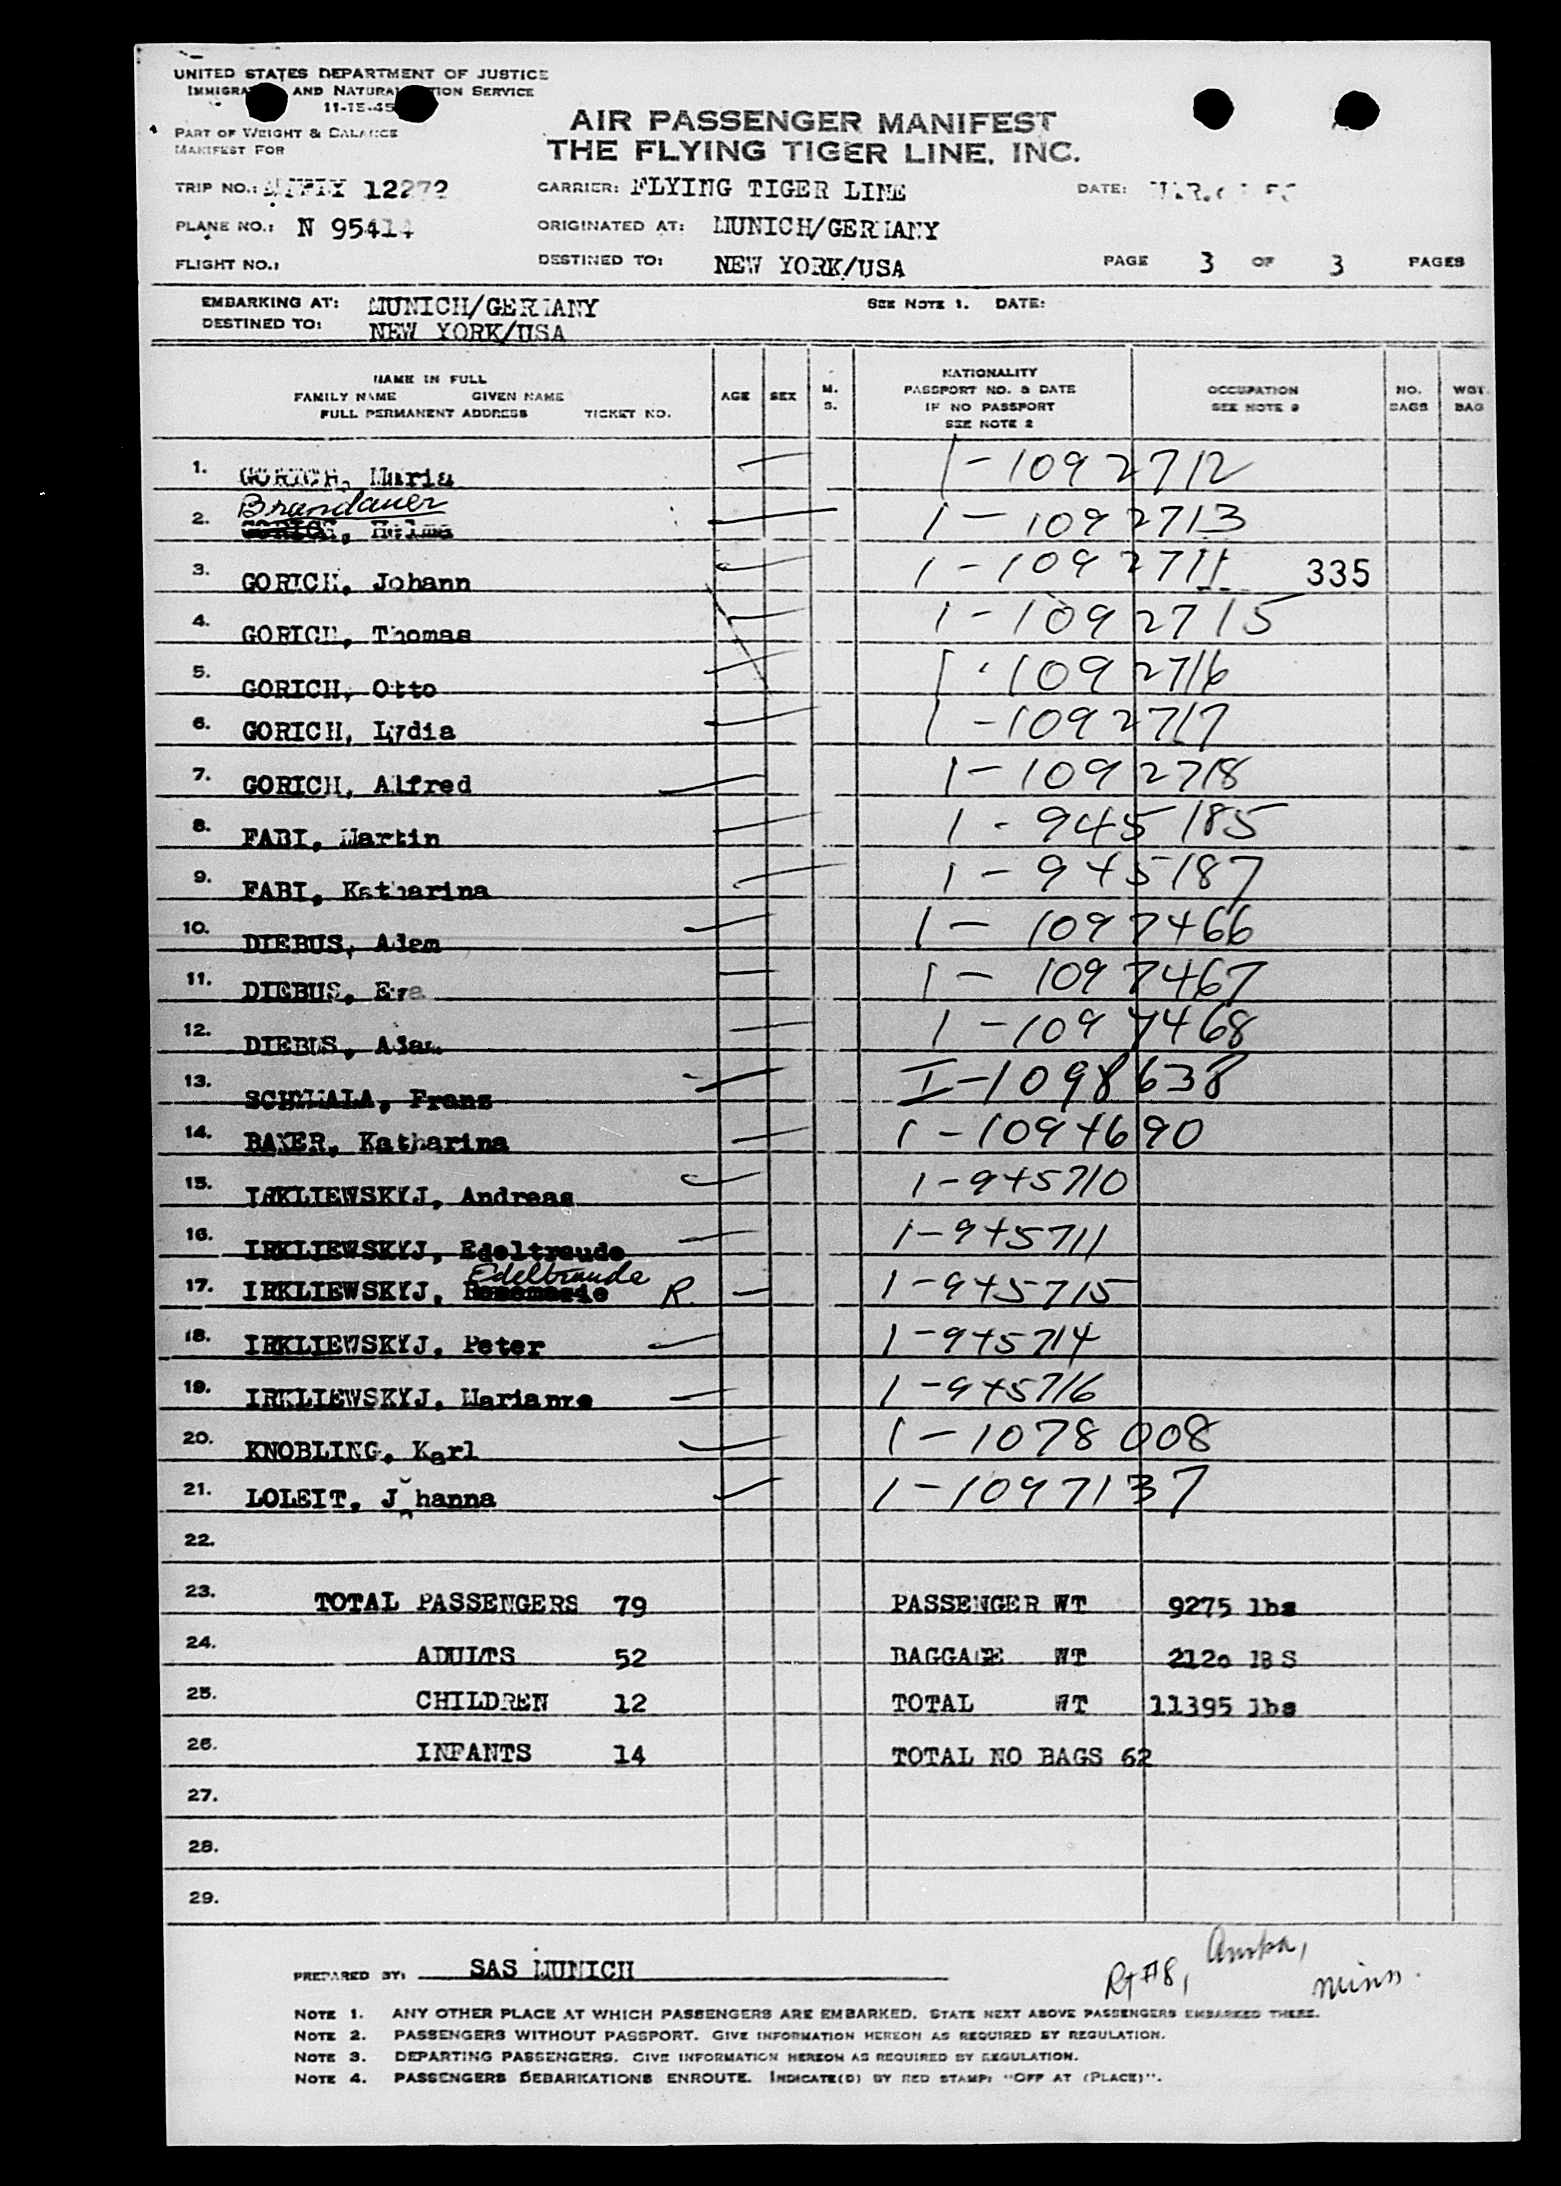 UNITED STATES DEPARTMENT OF JUSTICE
IMMIGRA AND NATURAL TION SERVICE
11-15-45
PART OF WEIGHT & BALANCE
MANIFEST FOR
AIR PASSENGER MANIFEST
THE FLYING TIGER LINE, INC.
TRIP NO.: 12272 CARRIER: FLYING TIGER LINE DATE: MAR.
PLANE NO.: N 95414 ORIGINATED AT: MUNICH/GERMANY
FLIGHT NO.: DESTINED TO: NEW YORK/USA PAGE 3 OF 3 PAGES
EMBARKING AT: MUNICH/GERMANY SEE NOTE 1. DATE:
DESTINED TO: NEW YORK/USA
NAME IN FULL
FAMILY NAME GIVEN NAME
FULL PERMANENT ADDRESS TICKET NO.
AGE SEX M. S.
NATIONALITY
PASSPORT NO. & DATE
IF NO PASSPORT
SEE NOTE 2
OCCUPATION
SEE NOTE 2
NO. BAGS
WGT. BAG
1. GORICH, Maria 1-1092712
Brandauer
2. GORICH, Helma 1-1092713
3. GORICH, Johann 1-1092711 335
4. GORICH, Thomas 1-1092715
5. GORICH, Otto 1-1092716
6. GORICH, Lydia 1-1092717
7. GORICH, Alfred 1-1092718
8. FABI, Martin 1-945185
9. FABI, Katharina 1-945187
10. DIEBUS, Adam 1-1097466
11. DIEBUS, Eva 1-1097467
12. DIEBUS, Adam 1-1097468
13. SCHYMALA, Franz I-1098638
14. BAKER, Katharina 1-1094690
15. IRKLIEWSKYJ, Andreas 1-945710
16. IRKLIEWSKYJ, Edeltraude 1-945711
Edeltraude
17. IRKLIEWSKYJ, Rosemarie R. 1-945715
18. IRKLIEWSKYJ, Peter 1-945714
19. IRKLIEWSKYJ, Marianne 1-945716
20. KNOBLING, Karl 1-1078008
21. LOLEIT, Johanna 1-1097137
22.
23. TOTAL PASSENGERS 79 PASSENGER WT 9275 lbs
24. ADULTS 52 BAGGAGE WT 2120 lBS
25. CHILDREN 12 TOTAL WT 11395 lbs
26. INFANTS 14 TOTAL NO BAGS 62
27.
28.
29.
PREPARED BY: SAS MUNICH
Rt #8, Anoka, Minn.
NOTE 1. ANY OTHER PLACE AT WHICH PASSENGERS ARE EMBARKED. STATE NEXT ABOVE PASSENGERS EMBARKED THERE.
NOTE 2. PASSENGERS WITHOUT PASSPORT. GIVE INFORMATION HEREON AS REQUIRED BY REGULATION.
NOTE 3. DEPARTING PASSENGERS. GIVE INFORMATION HEREON AS REQUIRED BY REGULATION.
NOTE 4. PASSENGERS DEBARKATIONS ENROUTE. INDICATE(D) BY RED STAMP: "OFF AT (PLACE)".